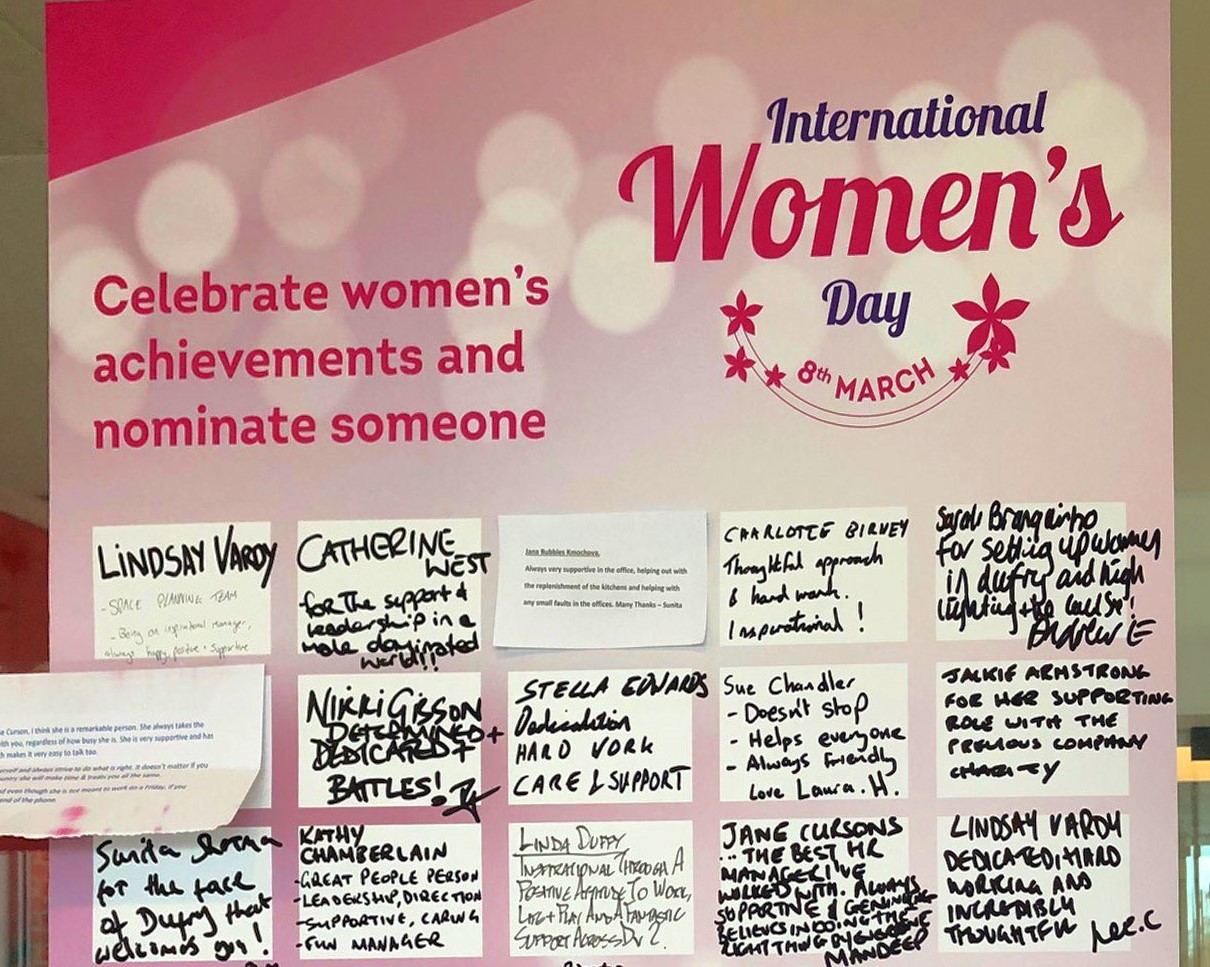 International
Women's
Day
8th MARCH
Celebrate women's
achievements and
nominate someone
LINDSAY VARDY
- SPACE PLANNING TEAM
- Being an inspirational manager,
always happy, positive + supportive
CATHERINE
WEST
for the support &
leadership in a
male dominated
world!!
Jana Bubbles Kmochova,
Always very supportive in the office, helping out with
the replenishment of the kitchens and helping with
any small faults in the offices. Many Thanks – Sunita
CHARLOTTE BIRVEY
Thoughtful approach
& hard work.
Inspirational!
Sarah Branquinho
for setting up women
in dufry and high
lighting the cause!
Andrew E
Curson, I think she is a remarkable person. She always takes the
with you, regardless of how busy she is. She is very supportive and has
makes it very easy to talk too.
and always strive to do what is right. It doesn't matter if you
she will make time & treats you all the same.
even though she is not meant to work on a Friday, if you
end of the phone.
NIKKI GIBSON
DETERMINED +
DEDICATED +
BATTLES!
STELLA EDWARDS
Dedication
HARD WORK
CARE & SUPPORT
Sue Chandler
- Doesn't stop
- Helps everyone
- Always friendly
Love Laura. H.
JACKIE ARMSTRONG
FOR HER SUPPORTING
ROLE WITH THE
PREVIOUS COMPANY
CHARITY
Sunita Sharma
for the face
of Dufry that
welcomes you!
KATHY
CHAMBERLAIN
- GREAT PEOPLE PERSON
- LEADERSHIP, DIRECTION
- SUPPORTIVE, CARING
- FUN MANAGER
LINDA DUFFY
INSPIRATIONAL THROUGH A
POSITIVE ATTITUDE TO WORK,
LIFE + PLAY AND A FANTASTIC
SUPPORT ACROSS DIV 2.
JANE CURSONS
... THE BEST HR
MANAGER I'VE
WORKED WITH. ALWAYS
SUPPORTIVE & GENUINE
BELIEVES IN DOING THE
RIGHT THING BY EVERYONE
MANDEEP
LINDSAY VARDY
DEDICATED, HARD
WORKING AND
INCREDIBLY
THOUGHTFUL
Lee.C